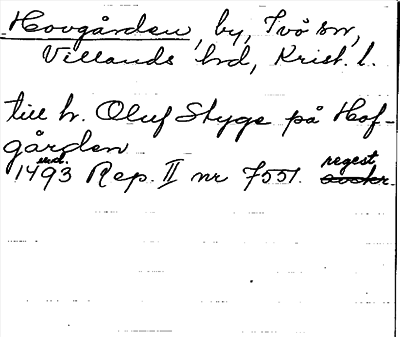 Hovgården, by, Ivö sn,
Villands hrd, Krist. l.
till hr. Oluf Styge på Hof-
gården
1493 Rep. II nr 7551. regest